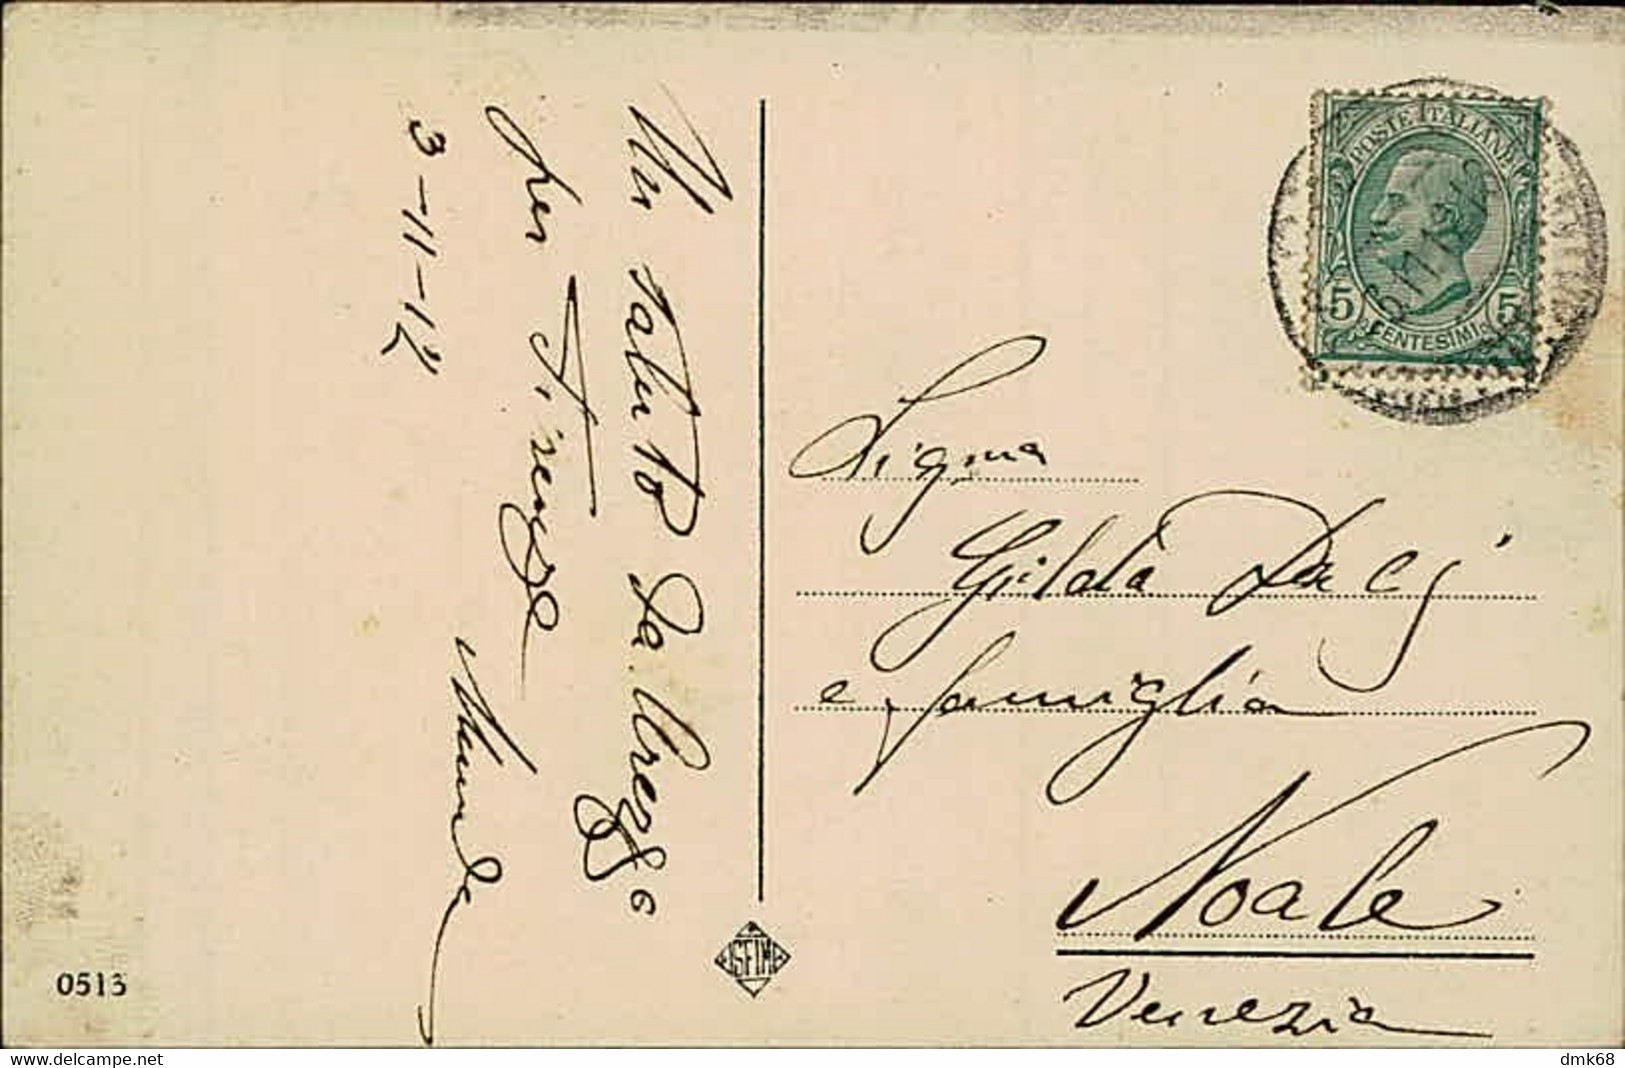 Un saluto da Arezzo
per Firenze
3-11-12
POSTE ITALIANE
5 5
CENTESIMI
Sigma
Gilda
e famiglia
Noale
Venezia
0513
delcampe.net
dmk68